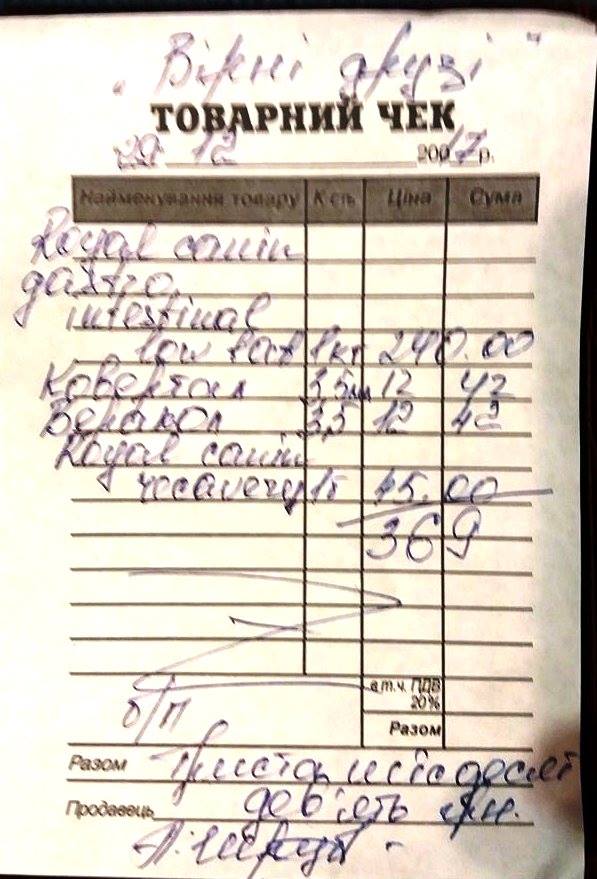 "Вірні друзі"
ТОВАРНИЙ ЧЕК
29 12 2017р.
Найменування товару К-сть Ціна Сума
Royal canin
gastro
intestinal
low fat 1кг 240.00
Ковертал 3,5мл 12 42
Веракол 3,5 12 42
Royal canin
recovery 1б 45.00
369
в т.ч. ПДВ
20%
б/п
Разом
Разом Триста шістдесят
Продавець дев'ять грн.